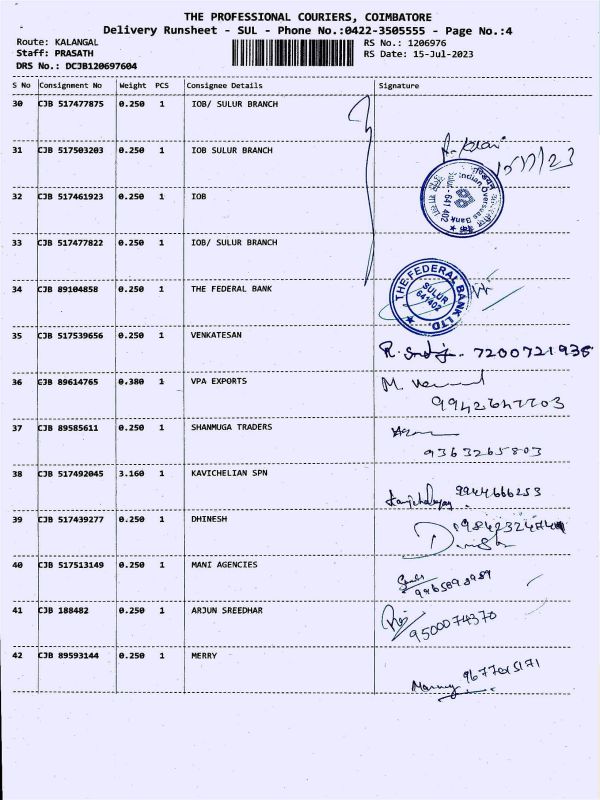 THE PROFESSIONAL COURIERS, COIMBATORE
Delivery Runsheet - SUL - Phone No.:0422-3505555 - Page No.:4
Route: KALANGAL
RS No.: 1206976
Staff: PRASATH
RS Date: 15-Jul-2023
DRS No.: DCJB120697604
S No Consignment No Weight PCS Consignee Details Signature
30 CJB 517477875 0.250 1 IOB/ SULUR BRANCH
31 CJB 517503203 0.250 1 IOB SULUR BRANCH
32 CJB 517461923 0.250 1 IOB
Indian Overseas Bank
641 402
33 CJB 517477822 0.250 1 IOB/ SULUR BRANCH
34 CJB 89104858 0.250 1 THE FEDERAL BANK
THE FEDERAL BANK LTD.
SULUR
641402
35 CJB 517539656 0.250 1 VENKATESAN
7200721935
36 CJB 89614765 0.380 1 VPA EXPORTS
M.
9942647703
37 CJB 89585611 0.250 1 SHANMUGA TRADERS
9363265803
38 CJB 517492045 3.160 1 KAVICHELIAN SPN
9944666253
39 CJB 517439277 0.250 1 DHINESH
40 CJB 517513149 0.250 1 MANI AGENCIES
41 CJB 188482 0.250 1 ARJUN SREEDHAR
9500074370
42 CJB 89593144 0.250 1 MERRY